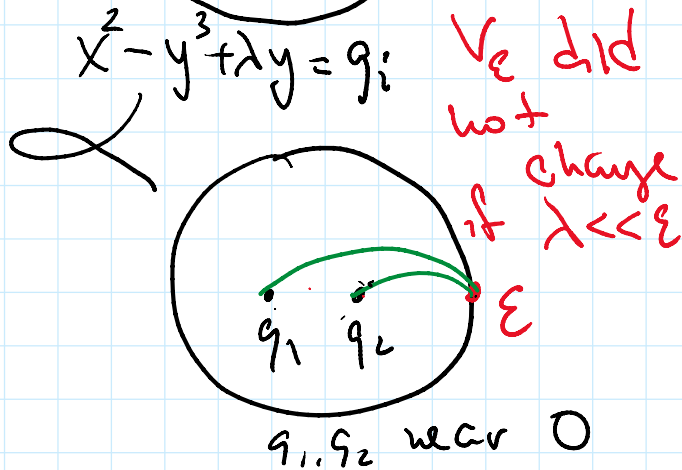 x² - y³ + λy = q_i
V_ε did
not
change
if λ << ε
ε
q_1 q_2
q_1, q_2 near 0